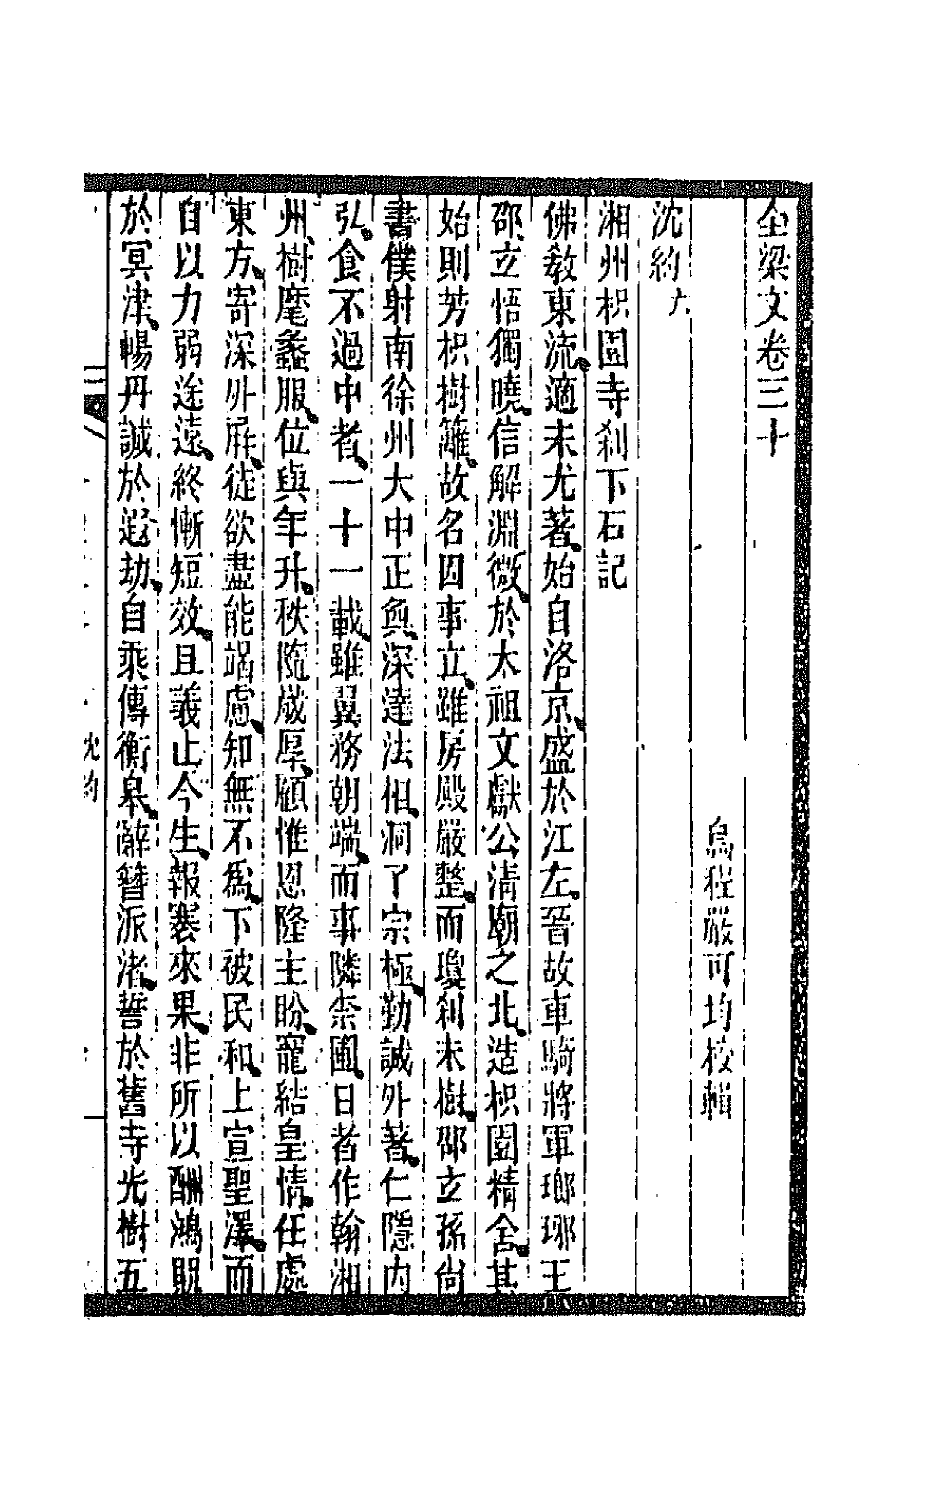 全梁文卷三十
烏程嚴可均校輯
沈約六
湘州枳園寺刹下石記
佛敎東流、適未尤著、始自洛京、盛於江左。晉故車騎將軍瑯琊王
邵、立悟獨曉、信解淵微、於太祖文獻公淸廟之北、造枳園精舍、其
始則芳枳樹籬、故名因事立、雖房殿嚴整、而瓊刹未樹、邵立孫尙
書僕射南徐州大中正奐、深達法相、洞了宗極、勤誠外著、仁隱内
弘、食不過中者、一十一載、雖翼務朝端、而事隣柰圃、日者作翰湘
州、樹麾蠡服、位與年升、秩隨歲厚、顧惟恩隆主盼、寵結皇情、任處
東方、寄深外屛、徒欲盡能竭慮、知無不爲、下被民和、上宣聖澤、而
自以力弱途遠、終慚短效、且義止今生、報褰來果、非所以酬鴻貺
於冥津、暢丹誠於遐劫、自乘傳衡皋、辭簪派渚、誓於舊寺光樹五
沈約